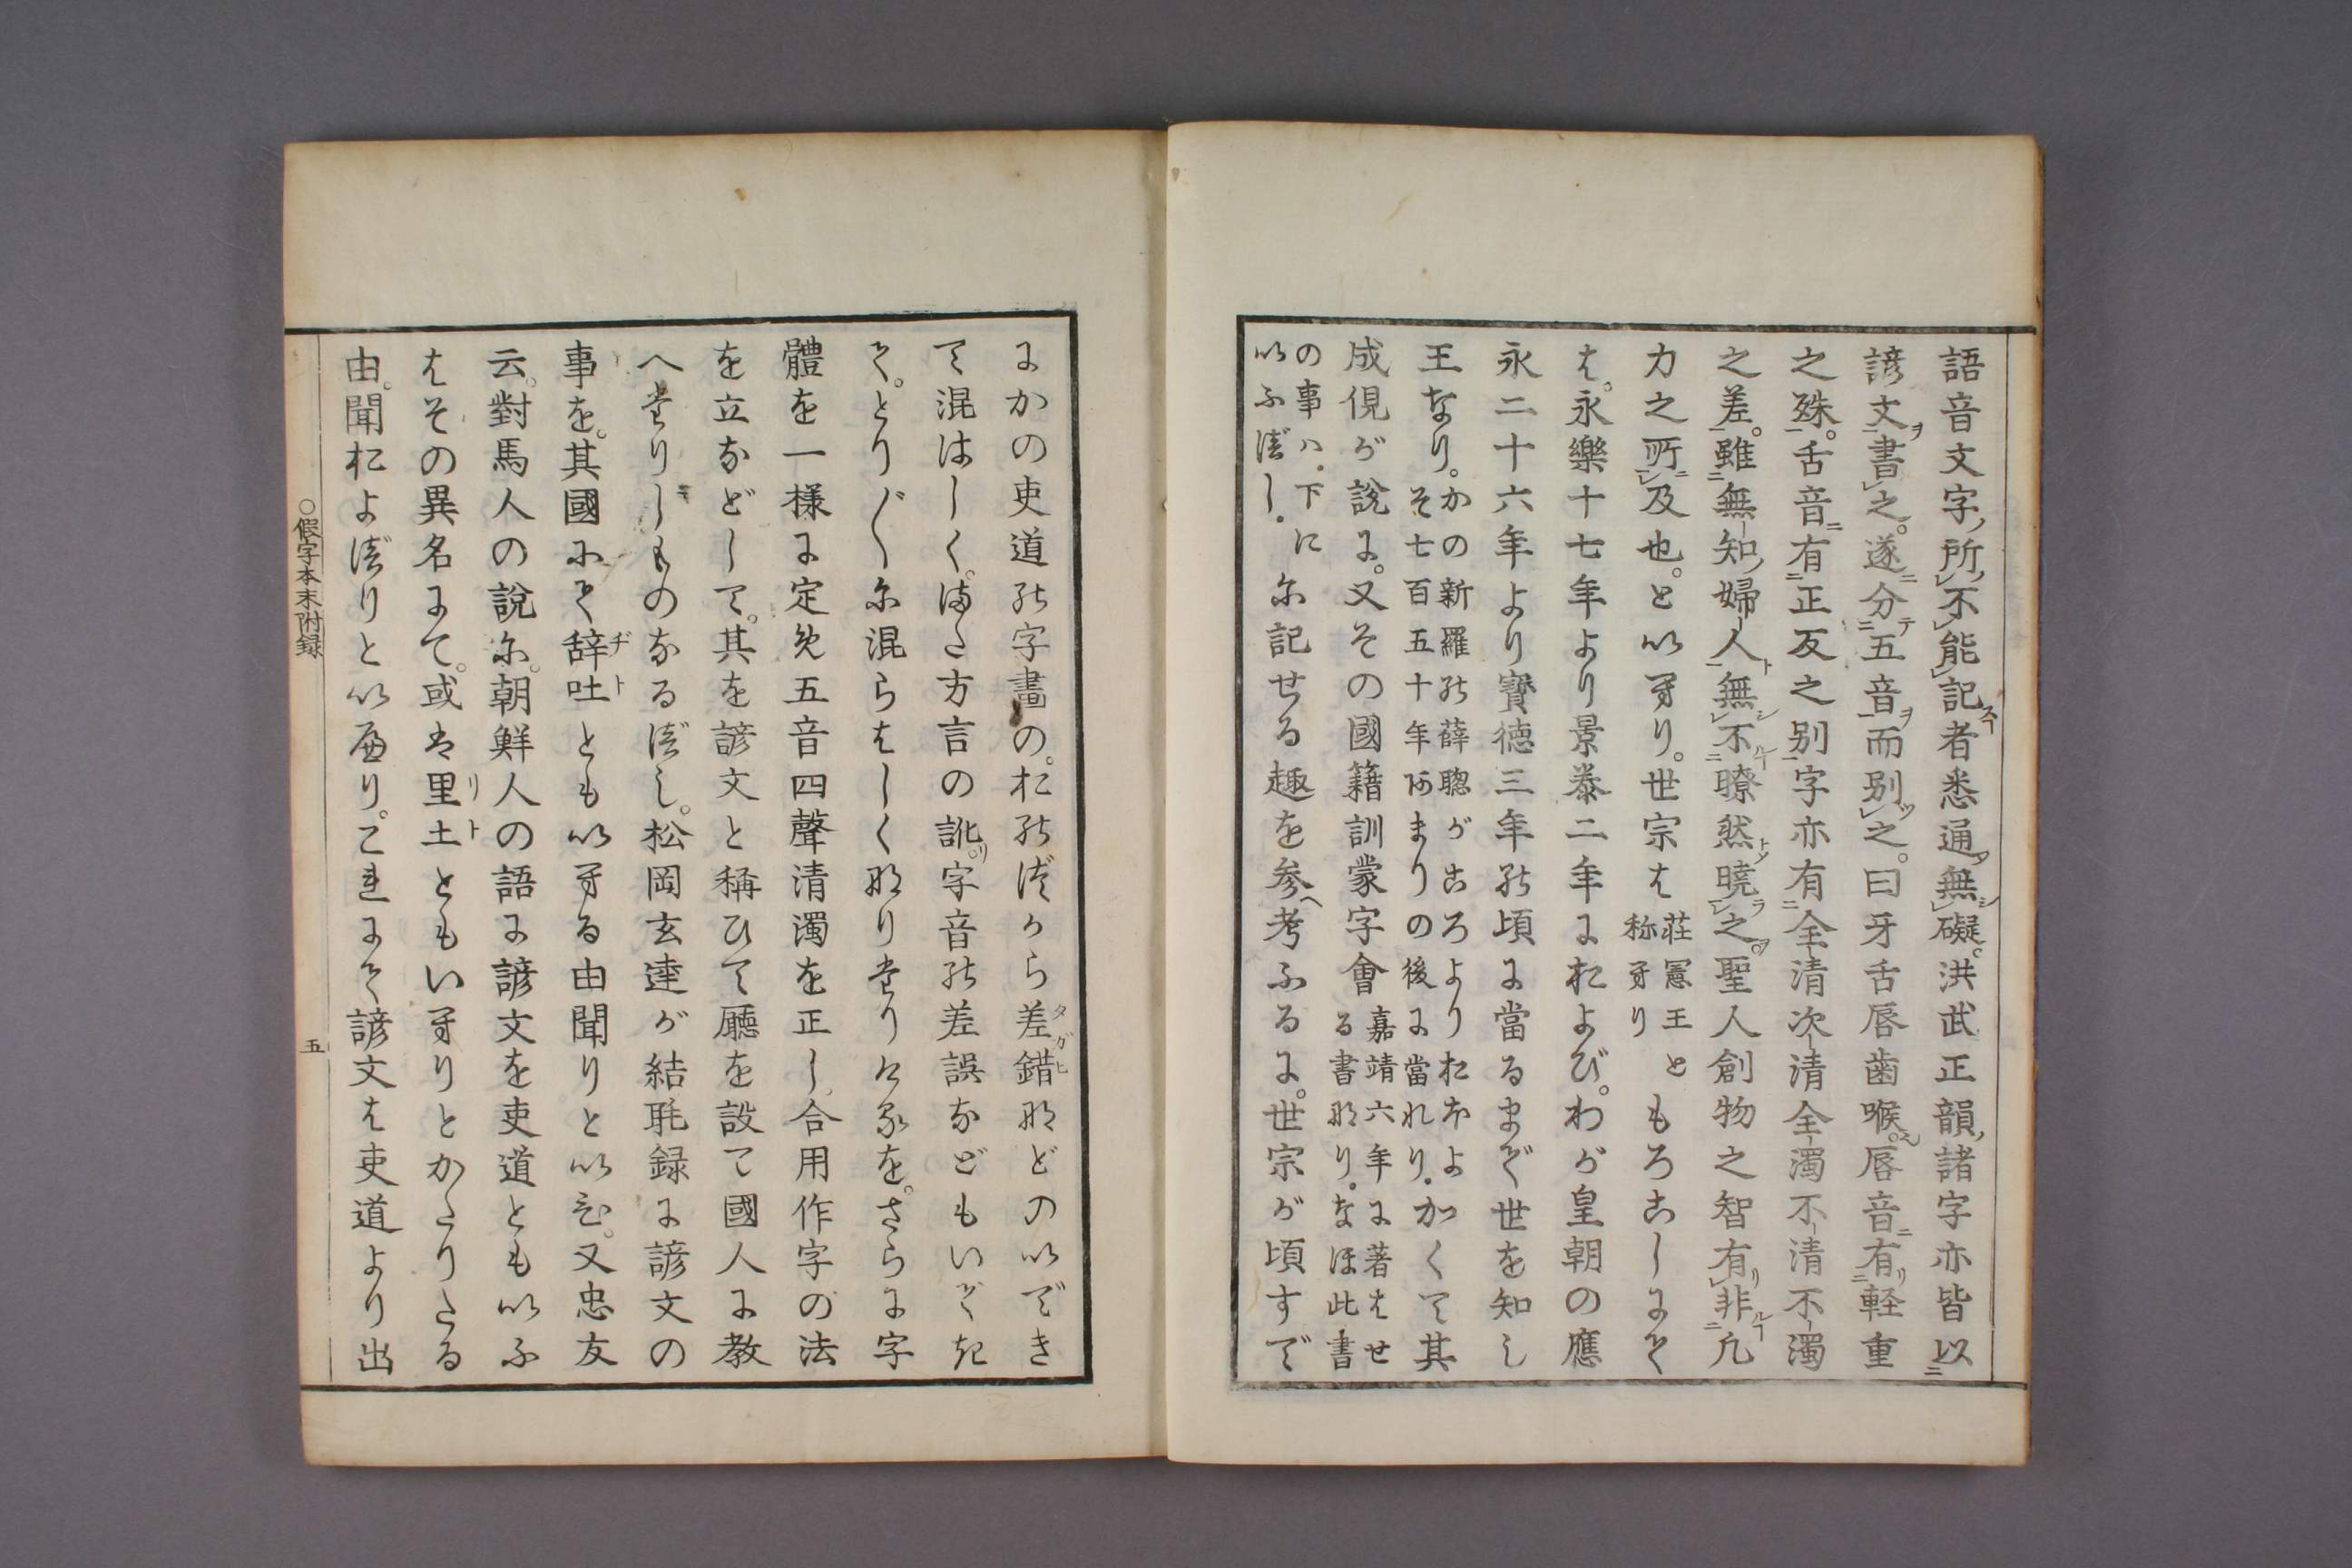 語音文字所不能記者悉通無礙。洪武正韻諸字亦皆以
諺文書之。遂分五音而別之。曰牙舌唇歯喉。唇音有軽重
之殊。舌音有正反之別字亦有全清次清全濁不清不濁
之差。雖無知婦人無不瞭然暁之。聖人創物之智有非凡
力之所及也。といへり。世宗は荘憲王とも称へりもろこしにて
は。永樂十七年より景泰二年におよび。わが皇朝の應
永二十六年より寳徳三年の頃に當るまで世を知し
王なり。かの新羅の薛聰がころよりおほよそ七百五十年あまりの後に當れり。かくて其
成俔が説に。又その國籍訓蒙字會嘉靖六年に著はせる書なり。なほ此書の事ハ。下にいふべし。
に記せる趣を参考ふるに。世宗が頃すで
にかの吏道の字畫の。おのづから差錯などのいでき
て混はしく。また方言の訛字音の差誤などもいでき
て。とり〴〵に混らはしくなりたりけるを。さらに字
體を一様に定め五音四聲清濁を正し。合用作字の法
を立などして。其を諺文と稱ひて廳を設て國人に教
へたりしものなるべし。松岡玄達が結毦録に諺文の
事を。其國にて辞吐ともいへる由聞りといひ。又忠友
云。對馬人の説に。朝鮮人の語に諺文を吏道ともいふ
はその異名にて。或は里土ともいへりとかたりたる
由。聞およべりといへり。これにて諺文は吏道より出
○假字本末附録
五